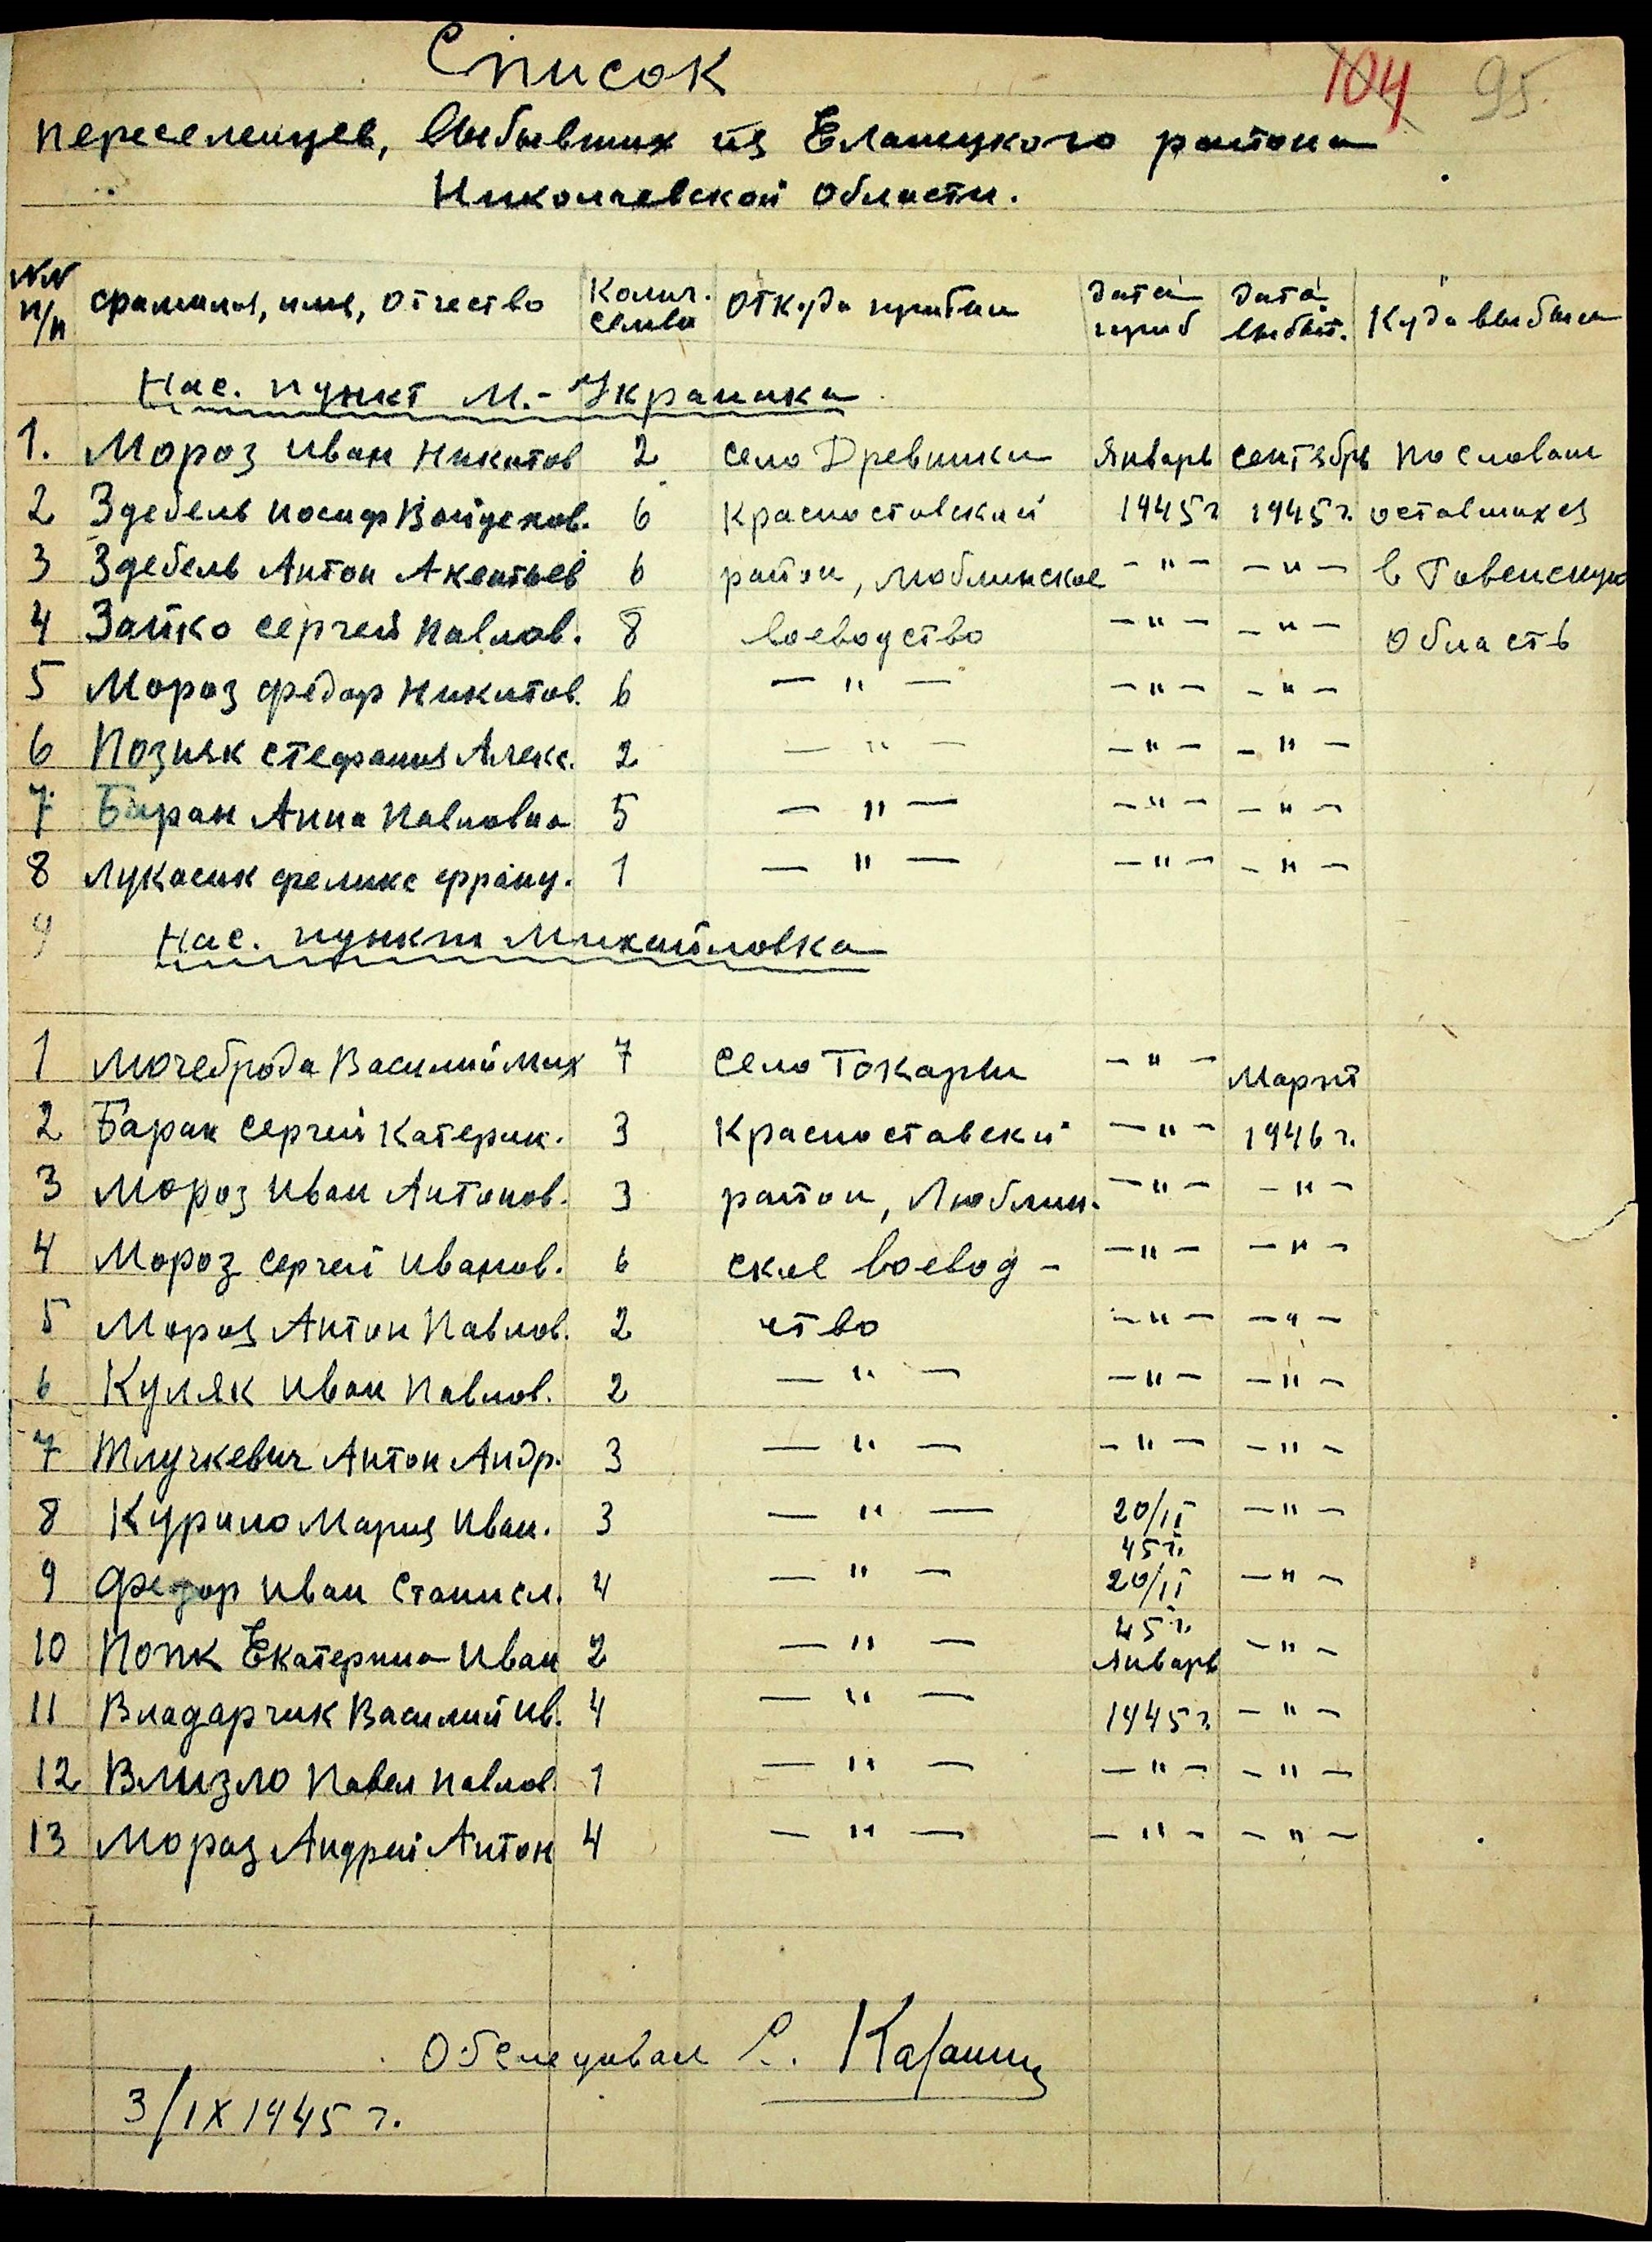 104 95.
Список
переселенцев, выбывших из Еланецкого района
Николаевской области.
NN п/п фамилия, имя, отчество Колич. семьи откуда прибыл дата приб дата выбыт. Куда выбыли
Нас. пункт М.-Украинка
1. Мороз Иван Никитов 2 село Древники Январь сентябрь по словам
2 Здебель Иосиф Войцехов. 6 Красноставский 1945г 1945г. оставшихся
3 Здебель Антон Акентьев 6 район, Люблинское -"- -"- в Ровенскую
4 Зайко Сергей Павлов. 8 воеводство -"- -"- область
5 Мороз Федор Никитов. 6 -"- -"- -"-
6 Позняк Стефания Алекс. 2 -"- -"- -"-
7 Баран Анна Павловна 5 -"- -"- -"-
8 Лукасик Феликс Франц. 1 -"- -"- -"-
9 Нас. пункт Михайловка
1 Мочеброда Василий Мих 7 Село Токарки -"- Март
2 Баран Сергей Катерин. 3 Красноставский -"- 1946г.
3 Мороз Иван Антонов. 3 район, Люблин- -"- -"-
4 Мороз Сергей Иванов. 6 ское воевод- -"- -"-
5 Мороз Антон Павлов. 2 ство -"- -"-
6 Куляк Иван Павлов. 2 -"- -"- -"-
7 Тлучкевич Антон Андр. 3 -"- -"- -"-
8 Курило Мария Иван. 3 -"- 20/II 45г. -"-
9 Федор Иван Станисл. 4 -"- 20/II 45г. -"-
10 Попк Екатерина Иван 2 -"- Январь -"-
11 Владарчик Василий Ив. 4 -"- 1945г. -"-
12 Влизло Павел Павлов. 1 -"- -"- -"-
13 Мороз Андрей Антон 4 -"- -"- -"-
Обследовал
3/IX 1945 г.